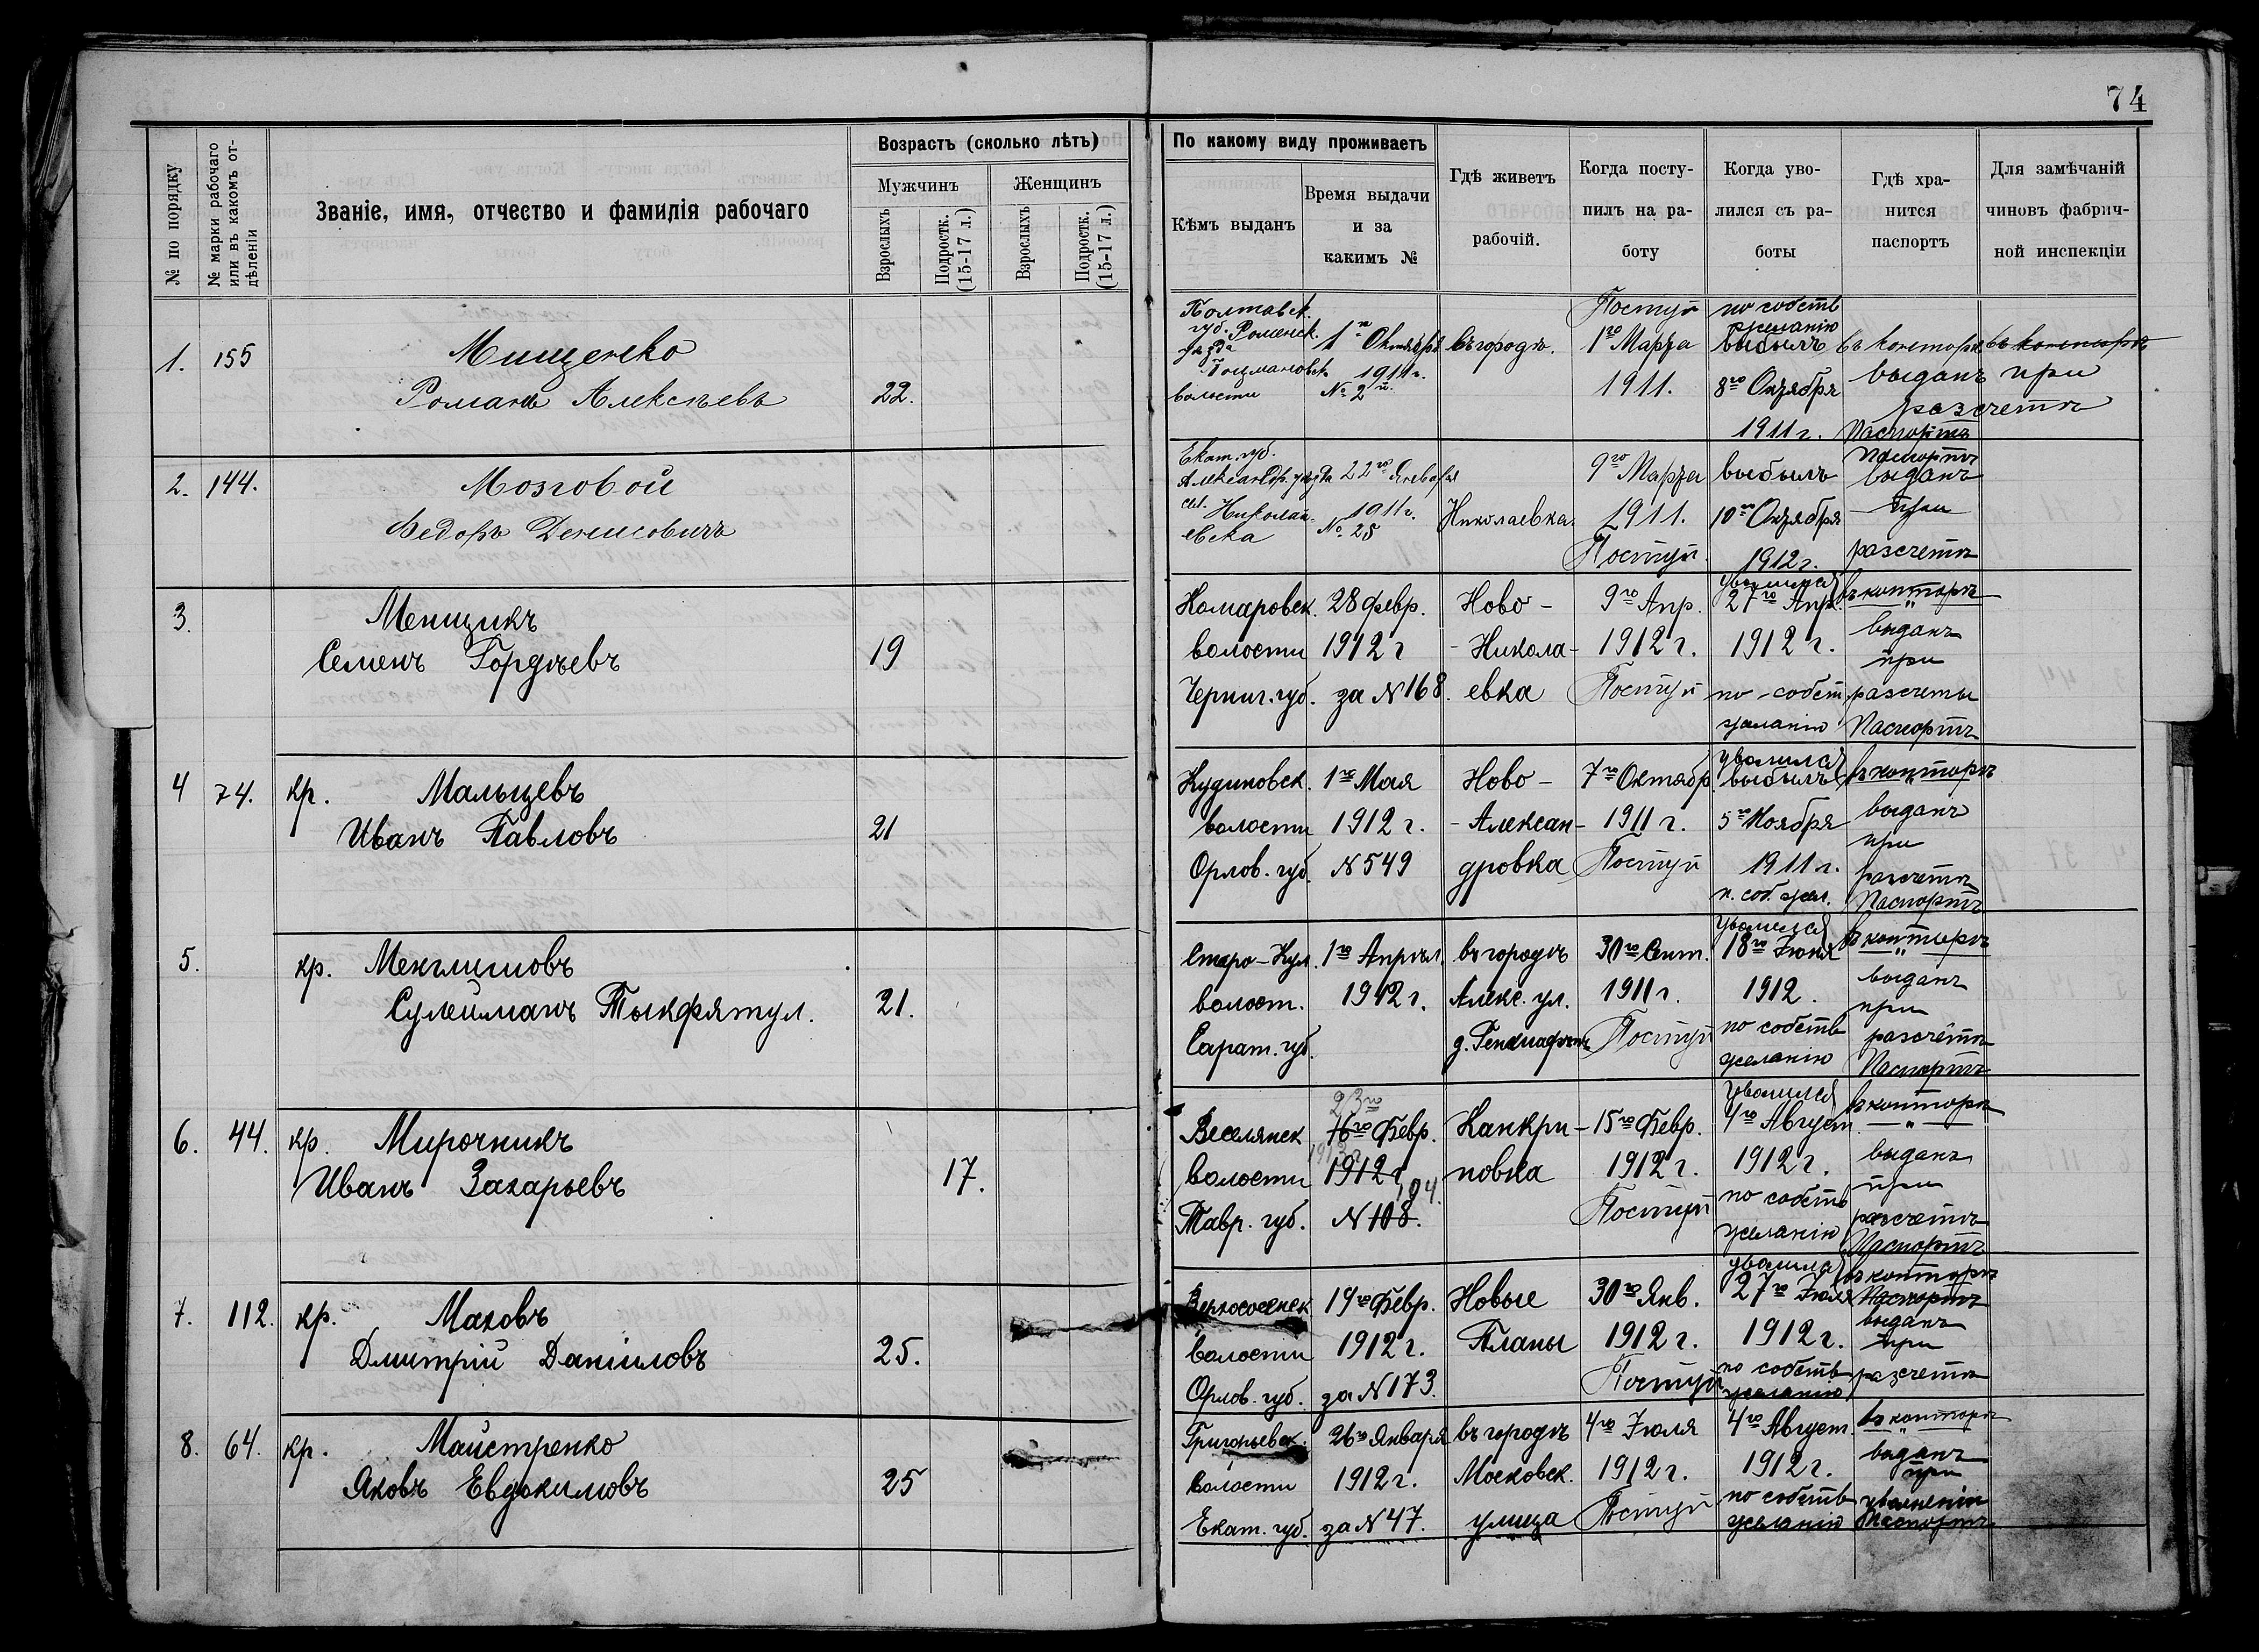 74
№ по порядку
№ марки рабочаго или въ какомъ отдѣленіи
Званіе, имя, отчество и фамилія рабочаго
Возрастъ (сколько лѣтъ)
Мужчинъ
Женщинъ
Взрослыхъ
Подростк. (15-17 л.)
Взрослыхъ
Подростк. (15-17 л.)
По какому виду проживаетъ
Кѣмъ выданъ
Время выдачи
и за
какимъ №
Гдѣ живетъ
рабочій.
Когда посту-
пилъ на ра-
боту
Когда уво-
лился съ ра-
боты
Гдѣ хра-
нится
паспортъ
Для замѣчаній
чиновъ фабрич-
ной инспекціи
1.
155
Мищенко
Романъ Алексѣевъ
22.
Полтавск.
губ. Роменск.
уѣзда
волости
1го Октября
1911 г.
№ 2
въ городѣ.
Поступ
1го Марта
1911.
по собств
желанію
выбылъ
8го Октября
1911 г.
въ конторѣ
въ конторѣ
выданъ при
разсчетѣ
Паспортъ
2.
144.
Мозговой
Федоръ Денисовичъ
Екат. губ.
Александр. уѣзда
сел. Николаевка
22го Января
1911 г.
№ 25
Николаевка.
9го Марта
1911.
Поступ.
выбылъ
10го Октября
1912 г.
паспортъ
выданъ
при
разсчетѣ
3.
Менщикъ
Семенъ Гордѣевъ
19
Комаровск.
волости
Черниг. губ.
28 февр.
1912 г
за N 168.
Ново-
-Никола-
евка
9го Апр.
1912 г.
Поступ
уволился
27го Апр.
1912 г.
по-собст
желанію
въ конторѣ
выданъ
при
разсчеты
Паспортъ
4
74.
кр. Мальцевъ
Иванъ Павловъ
21
Кудиновск.
волости
Орлов. губ.
1го Мая
1912 г.
N 549
Ново-
-Алексан-
дровка
7го Октябр
1911 г.
Поступ
уволился
выбылъ
5го Ноября
1911 г.
п. соб. жел.
въ конторѣ
выданъ
при
разсчетѣ
Паспортъ
5.
кр. Менглишовъ
Сулейманъ Тыкфятул.
21.
Старо-Кул.
волост.
Сарат. губ.
1го Апрѣл.
1912 г.
въ городѣ
Алекс. ул.
30го Сент.
1911 г.
Поступ
Уволился
18го Іюня
1912.
по собств
желанію
въ конторѣ
выданъ
при
разсчётѣ
Паспортъ
6.
44.
кр. Мирочникъ
Иванъ Захарьевъ
17.
Веселянск
волости
Тавр. губ.
23го
16го Февр.
1913 г
1912 г
104.
N 108.
Канкри-
новка
15го Февр.
1912 г.
Поступ
Уволился
4го Август.
1912 г.
по собств
желанію
въ конторѣ
выданъ
при
разсчетѣ
Паспортъ
7.
112.
кр. Маховъ
Дмитрій Даніиловъ
25.
Верхососенск
волости
Орлов. губ.
19го Февр.
1912 г.
за N 173.
Новые
Планы
30го Янв.
1912 г.
Поступ
уволился
27го Іюля
1912 г.
по собств
желанію
въ конторѣ
Паспортъ
выданъ
при
разсчетѣ
8.
64.
кр. Майстренко
Яковъ Евдокимовъ
25
Григорьевск.
волости
Екат. губ.
26го Января
1912 г.
за N 47.
въ городѣ
Московск.
улица
4го Іюля
1912 г.
Поступ
4го Август.
1912 г.
по собств
желанію
въ конторѣ
выданъ
при
увольненіи
Паспортъ